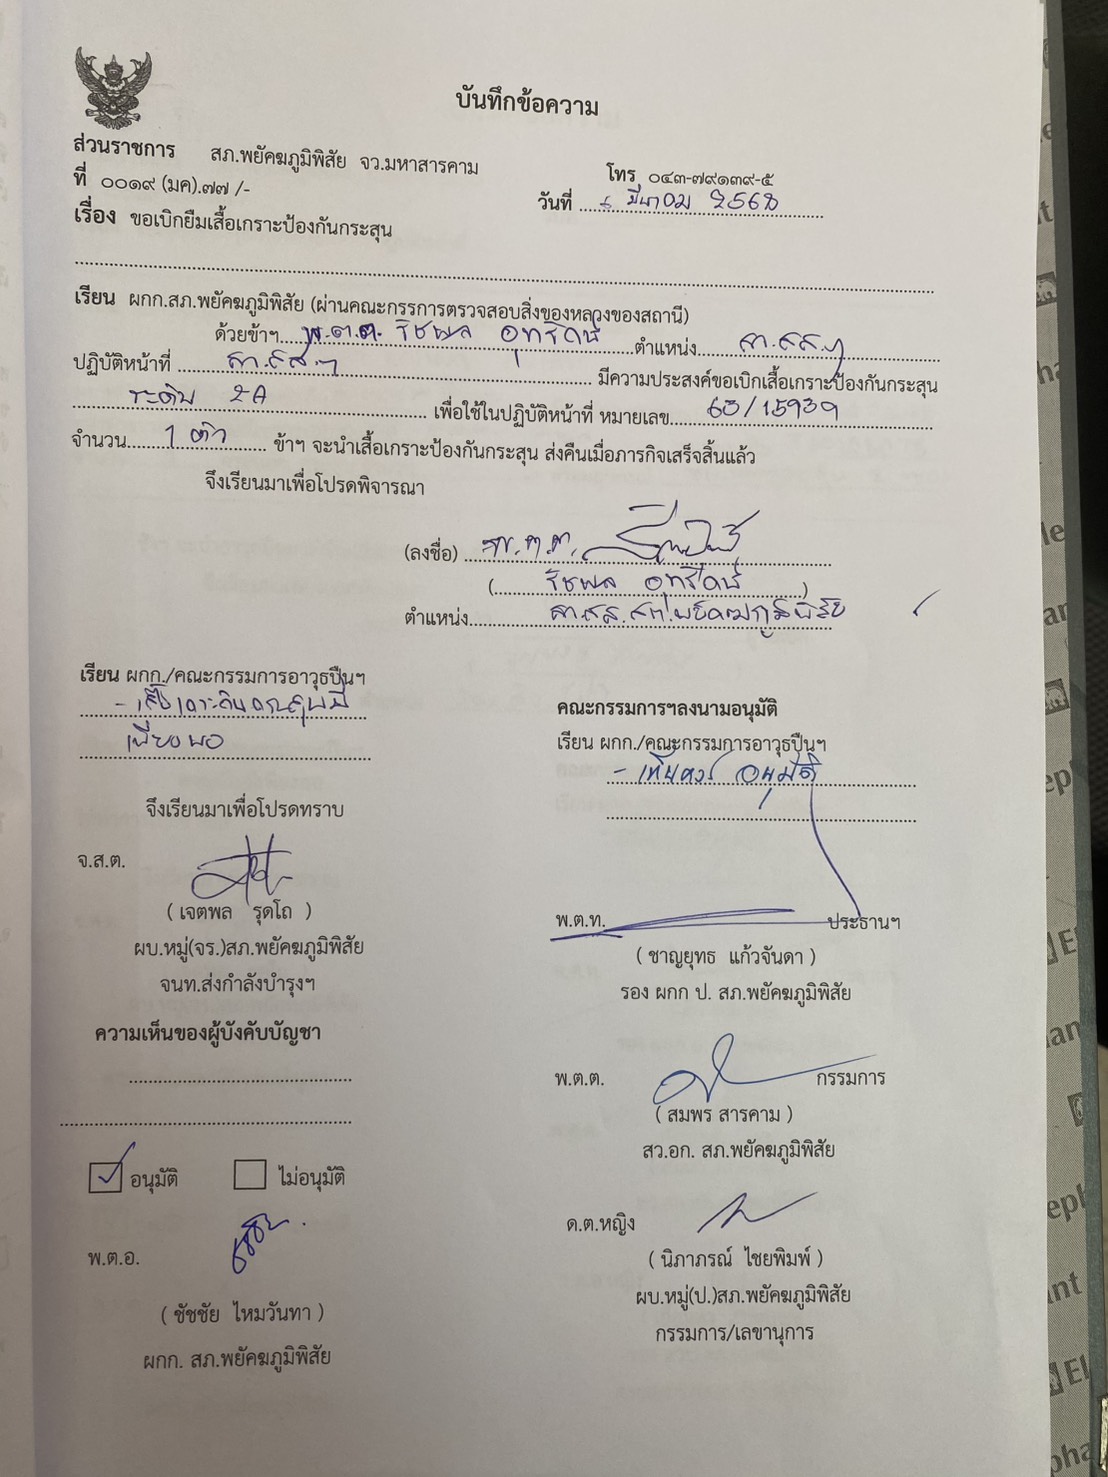 บันทึกข้อความ
ส่วนราชการ สภ.พยัคฆภูมิพิสัย จว.มหาสารคาม
โทร ๐๔๓-๗๙๑๓๙-๕
ที่ ๐๐๑๙ (มค).๗๗ /-
วันที่ ๖ มีนาคม 2568
เรื่อง ขอเบิกยืมเสื้อเกราะป้องกันกระสุน
เรียน ผกก.สภ.พยัคฆภูมิพิสัย (ผ่านคณะกรรการตรวจสอบสิ่งของหลวงของสถานี)
ด้วยข้าฯ พ.ต.ต. รัชพล อุทรักษ์ ตำแหน่ง สว.สส.ฯ
ปฏิบัติหน้าที่ สว.สส.ฯ มีความประสงค์ขอเบิกเสื้อเกราะป้องกันกระสุน
ระดับ 2A เพื่อใช้ในปฏิบัติหน้าที่ หมายเลข 63/15939
จำนวน 1 ตัว ข้าฯ จะนำเสื้อเกราะป้องกันกระสุน ส่งคืนเมื่อภารกิจเสร็จสิ้นแล้ว
จึงเรียนมาเพื่อโปรดพิจารณา
(ลงชื่อ) พ.ต.ต.
( รัชพล อุทรักษ์ )
ตำแหน่ง สว.สส.สภ.พยัคฆภูมิพิสัย
เรียน ผกก./คณะกรรมการอาวุธปืนฯ
- เสื้อเกราะกันกระสุนมี
เพียงพอ
จึงเรียนมาเพื่อโปรดทราบ
จ.ส.ต.
( เจตพล รุดโถ )
ผบ.หมู่(จร.)สภ.พยัคฆภูมิพิสัย
จนท.ส่งกำลังบำรุงฯ
ความเห็นของผู้บังคับบัญชา
อนุมัติ ไม่อนุมัติ
พ.ต.อ.
( ชัชชัย ไหมวันทา )
ผกก. สภ.พยัคฆภูมิพิสัย
คณะกรรมการฯลงนามอนุมัติ
เรียน ผกก./คณะกรรมการอาวุธปืนฯ
- เห็นควร อนุมัติ
พ.ต.ท. ประธานฯ
( ชาญยุทธ แก้วจันดา )
รอง ผกก ป. สภ.พยัคฆภูมิพิสัย
พ.ต.ต. กรรมการ
( สมพร สารคาม )
สว.อก. สภ.พยัคฆภูมิพิสัย
ด.ต.หญิง
( นิภาภรณ์ ไชยพิมพ์ )
ผบ.หมู่(ป.)สภ.พยัคฆภูมิพิสัย
กรรมการ/เลขานุการ